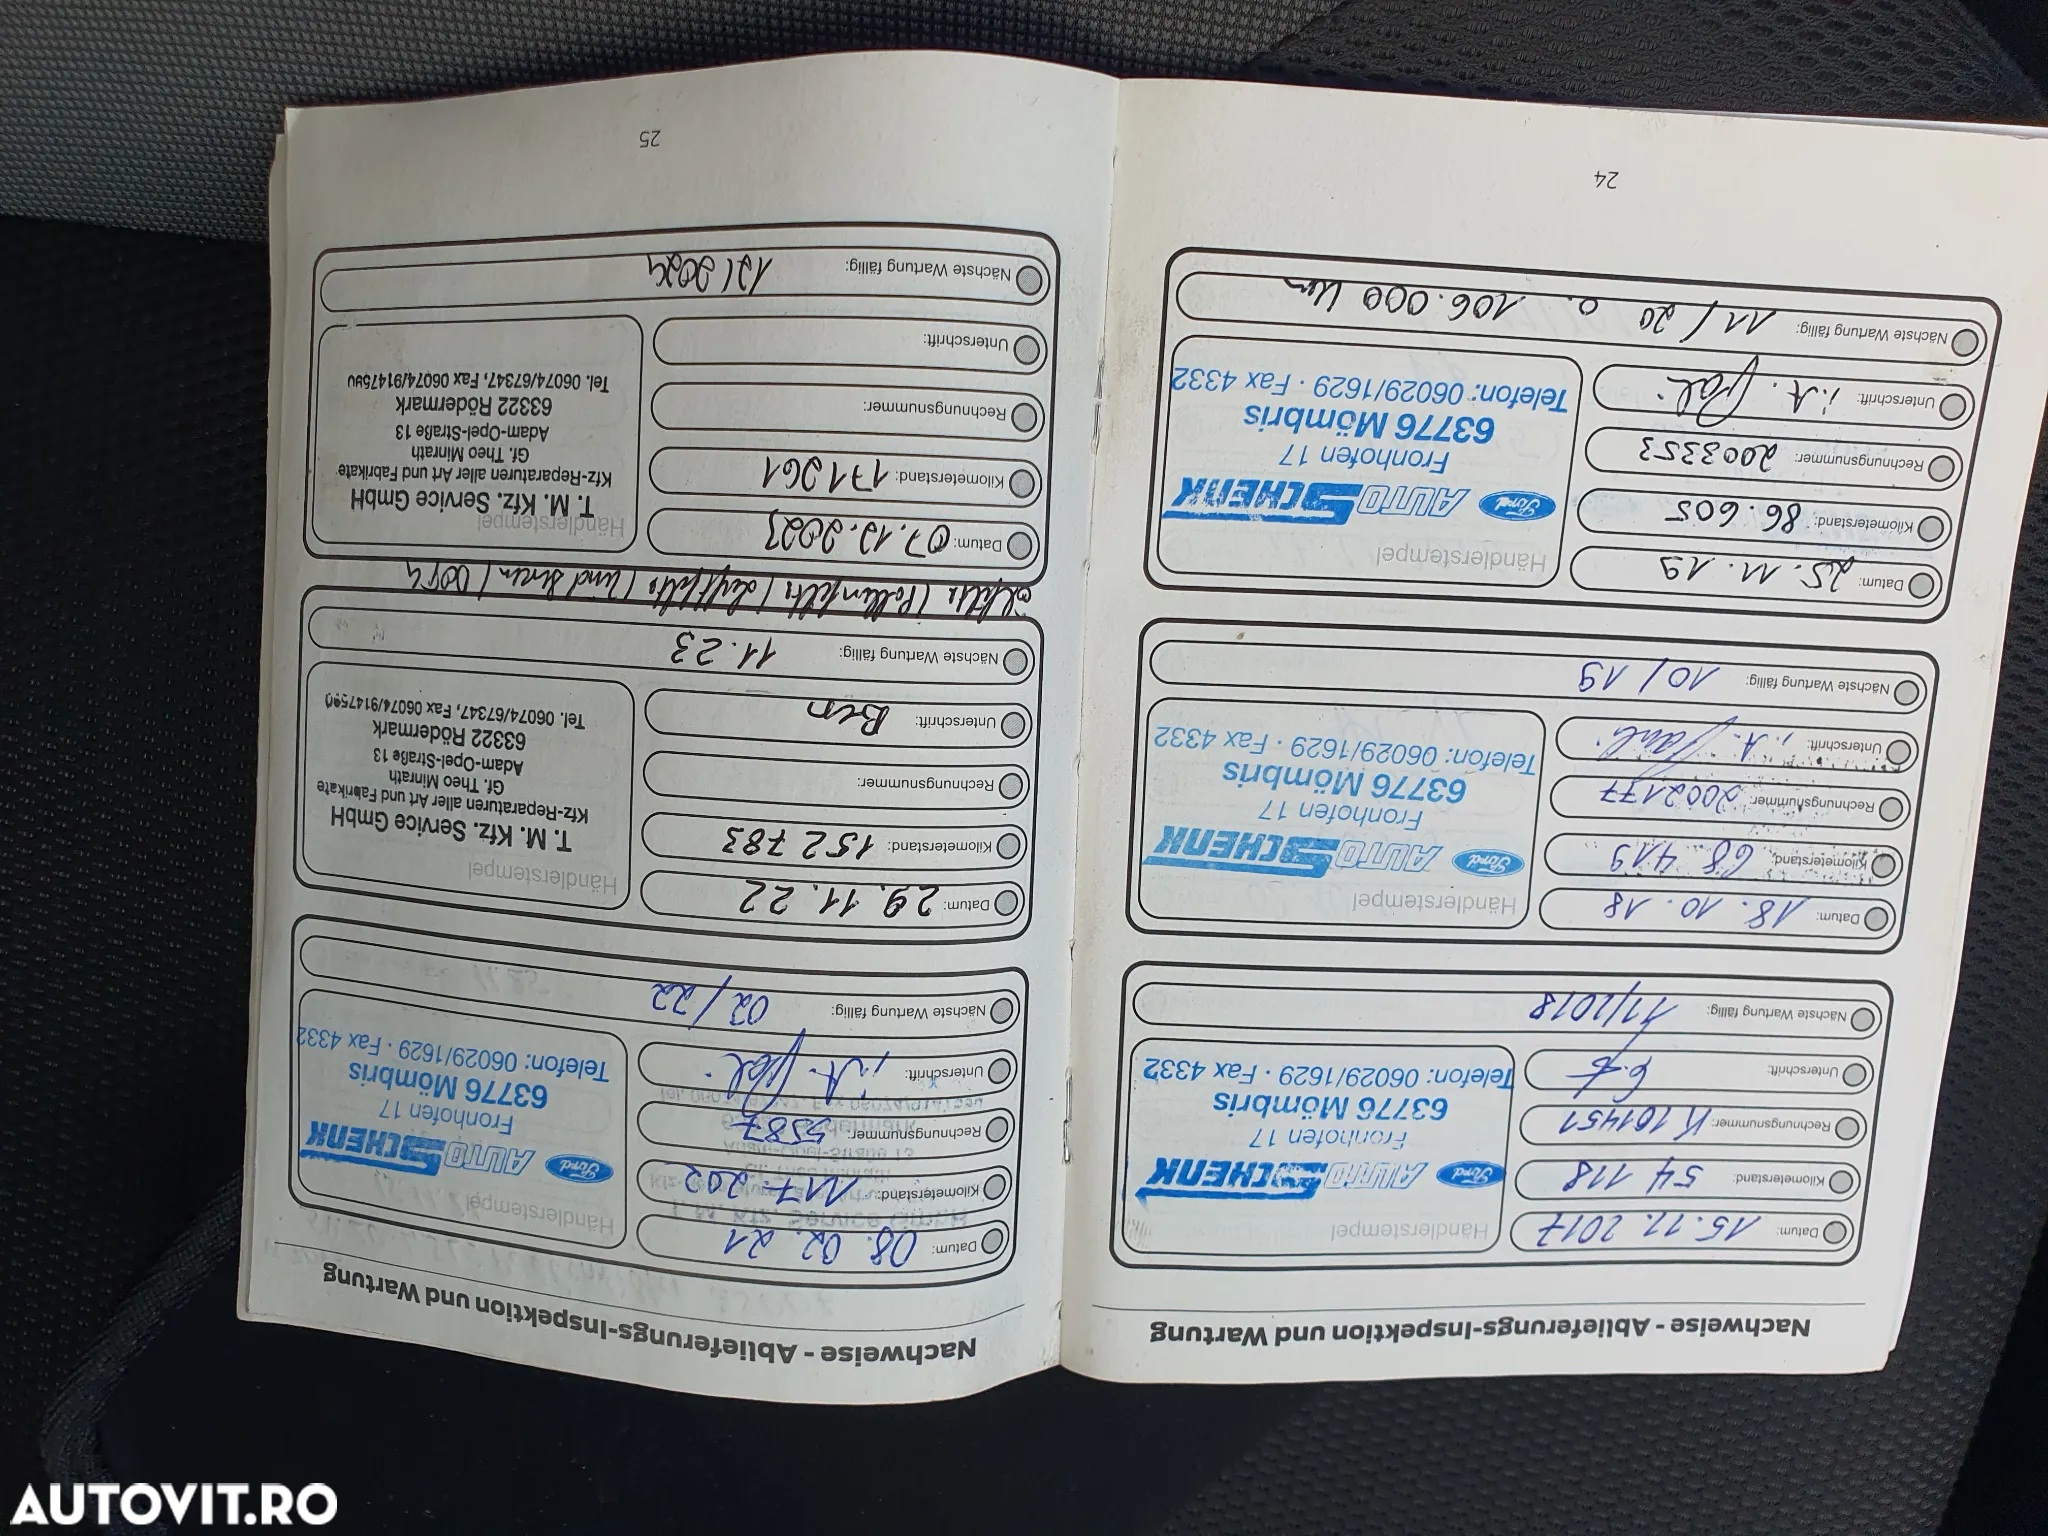 Nachweise - Ablieferungs-Inspektion und Wartung
Datum: 15.11.2017
Kilometerstand: 54 118
Rechnungsnummer: K101451
Unterschrift:
Nächste Wartung fällig: 11/2018
Händlerstempel
Ford AUTO SCHENK
Fronhofen 17
63776 Mömbris
Telefon: 06029/1629 · Fax 4332
Datum: 18.10.18
Kilometerstand: 68 419
Rechnungsnummer: 2002177
Unterschrift: i.A.
Nächste Wartung fällig: 10/19
Händlerstempel
Ford AUTO SCHENK
Fronhofen 17
63776 Mömbris
Telefon: 06029/1629 · Fax 4332
Datum: 25.11.19
Kilometerstand: 86.605
Rechnungsnummer: 2003353
Unterschrift: i.A.
Nächste Wartung fällig: 11/20 o. 106.000 km
Händlerstempel
Ford AUTO SCHENK
Fronhofen 17
63776 Mömbris
Telefon: 06029/1629 · Fax 4332
24
Nachweise - Ablieferungs-Inspektion und Wartung
Datum: 08.02.21
Kilometerstand: 117.202
Rechnungsnummer: 5587
Unterschrift: i.A.
Nächste Wartung fällig: 02/22
Händlerstempel
Ford AUTO SCHENK
Fronhofen 17
63776 Mömbris
Telefon: 06029/1629 · Fax 4332
Datum: 29.11.22
Kilometerstand: 152783
Rechnungsnummer:
Unterschrift: Ben
Nächste Wartung fällig: 11.23
Händlerstempel
T. M. Kfz. Service GmbH
Kfz-Reparaturen aller Art und Fabrikate
Gf. Theo Minrath
Adam-Opel-Straße 13
63322 Rödermark
Tel. 06074/67347, Fax 06074/9147590
Ölfilter / Pollenfilter / Luftfilter / und Bremsen / DOT4
Datum: 07.12.2023
Kilometerstand: 171261
Rechnungsnummer:
Unterschrift:
Nächste Wartung fällig: 12/2024
Händlerstempel
T. M. Kfz. Service GmbH
Kfz-Reparaturen aller Art und Fabrikate
Gf. Theo Minrath
Adam-Opel-Straße 13
63322 Rödermark
Tel. 06074/67347, Fax 06074/9147590
25
AUTOVIT.RO